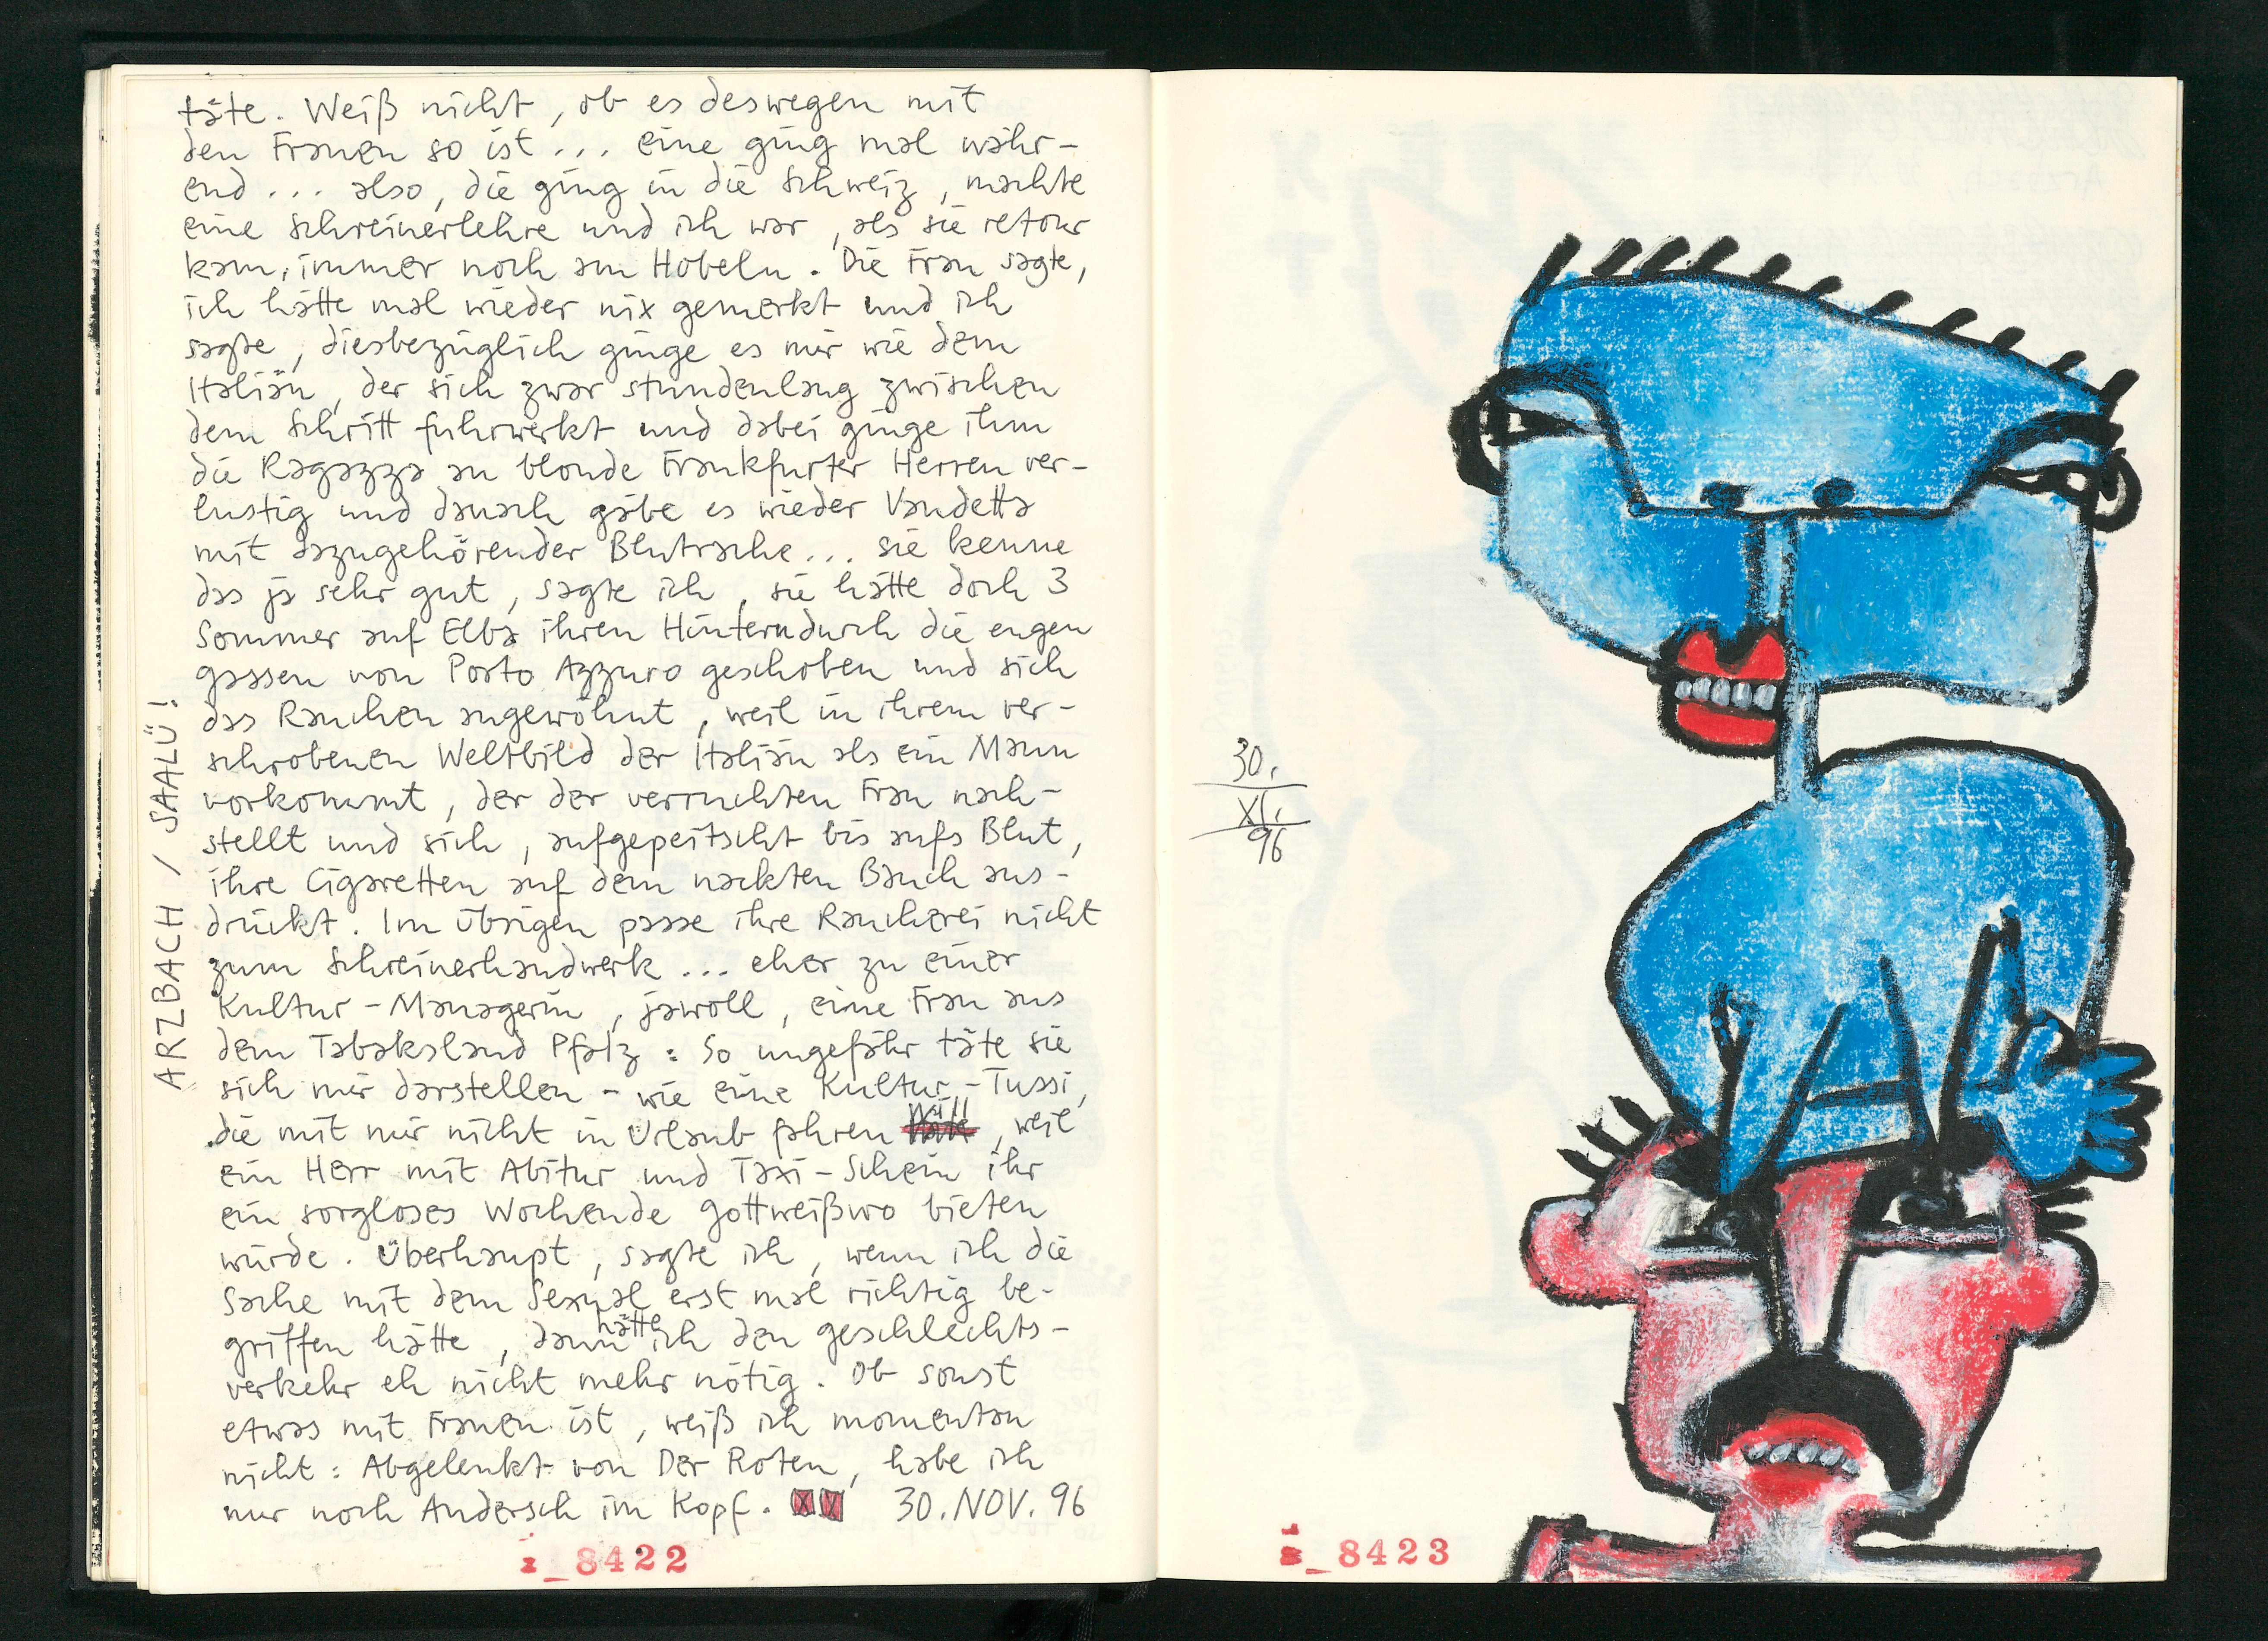 täte. Weiß nicht, ob es deswegen mit
den Frauen so ist... eine ging mal währ-
end... also, die ging in die Schweiz, machte
eine Schreinerlehre und ich war, als sie retour
kam, immer noch am Hobeln. Die Frau sagte,
ich hätte mal wieder nix gemerkt und ich
sagte, diesbezüglich ginge es mir wie dem
Italiän, der sich zwar stundenlang zwischen
dem Schritt fuhrwerkt und dabei ginge ihm
die Ragazza an blonde Frankfurter Herren ver-
lustig und danach gäbe es wieder Vandetta
mit dazugehörender Blutrache... sie kenne
das ja sehr gut, sagte ich, sie hätte doch 3
Sommer auf Elba ihren Hintern durch die engen
gassen von Porto Azzuro geschoben und sich
das Rauchen angewöhnt, weil in ihrem ver-
schrobenen Weltbild der Italiän als ein Mann
vorkommt, der der verruchten Frau nach-
stellt und sich, aufgepeitscht bis aufs Blut,
ihre Cigaretten auf dem nackten Bauch aus-
drückt. Im übrigen passe ihre Raucherei nicht
zum Schreinerhandwerk... eher zu einer
Kultur-Managerin, jawoll, eine Frau aus
dem Tabaksland Pfalz: So ungefähr täte sie
sich mir darstellen - wie eine Kultur-Tussi,
die mit mir nicht in Urlaub fahren will, weil
ein Herr mit Abitur und Taxi-Schein ihr
ein sorgloses Wochende gottweißwo bieten
würde. Überhaupt, sagte ich, wenn ich die
Sache mit dem Sexual erst mal richtig be-
griffen hätte, dann hätte ich den geschlechts-
verkehr eh nicht mehr nötig. Ob sonst
etwas mit Frauen ist, weiß ich momentan
nicht: Abgelenkt von Der Roten, habe ich
nur noch Andersch im Kopf. 30. NOV. 96
ARZBACH / SAALÜ!
_8422
30.
XI.
96
_8423